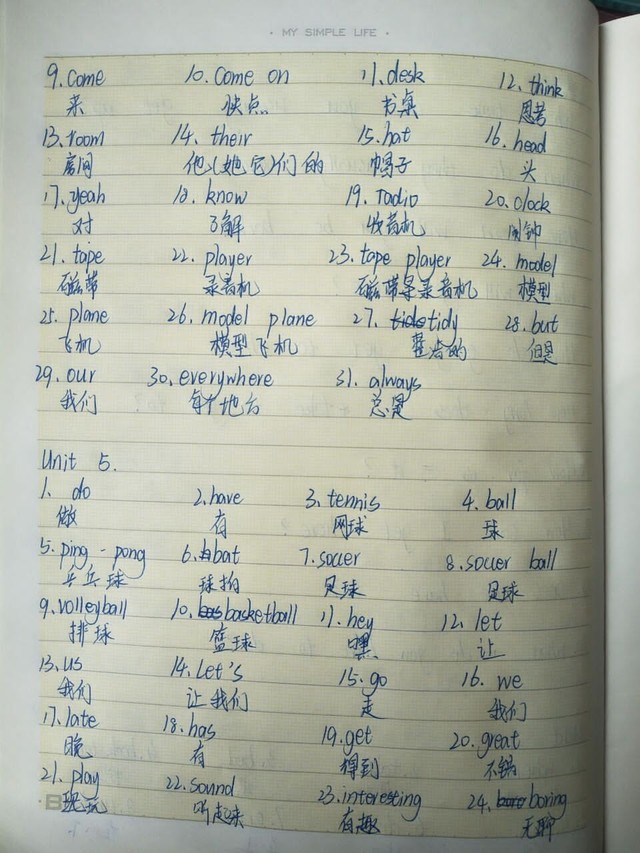 · MY SIMPLE LIFE ·
9. come 10. come on 11. desk 12. think
来 快点 书桌 思考
13. room 14. their 15. hat 16. head
房间 他(她它)们的 帽子 头
17. yeah 18. know 19. radio 20. clock
对 了解 收音机 闹钟
21. tape 22. player 23. tape player 24. model
磁带 录音机 磁带录音机 模型
25. plane 26. model plane 27. tidy 28. but
飞机 模型飞机 整洁的 但是
29. our 30. everywhere 31. always
我们 每个地方 总是
Unit 5.
1. do 2. have 3. tennis 4. ball
做 有 网球 球
5. ping-pong 6. bat 7. soccer 8. soccer ball
乒乓球 球拍 足球 足球
9. volleyball 10. basketball 11. hey 12. let
排球 篮球 嘿 让
13. us 14. Let's 15. go 16. we
我们 让我们 走 我们
17. late 18. has 19. get 20. great
晚 有 得到 不错
21. play 22. sound 23. interesting 24. boring
玩 听起来 有趣 无聊